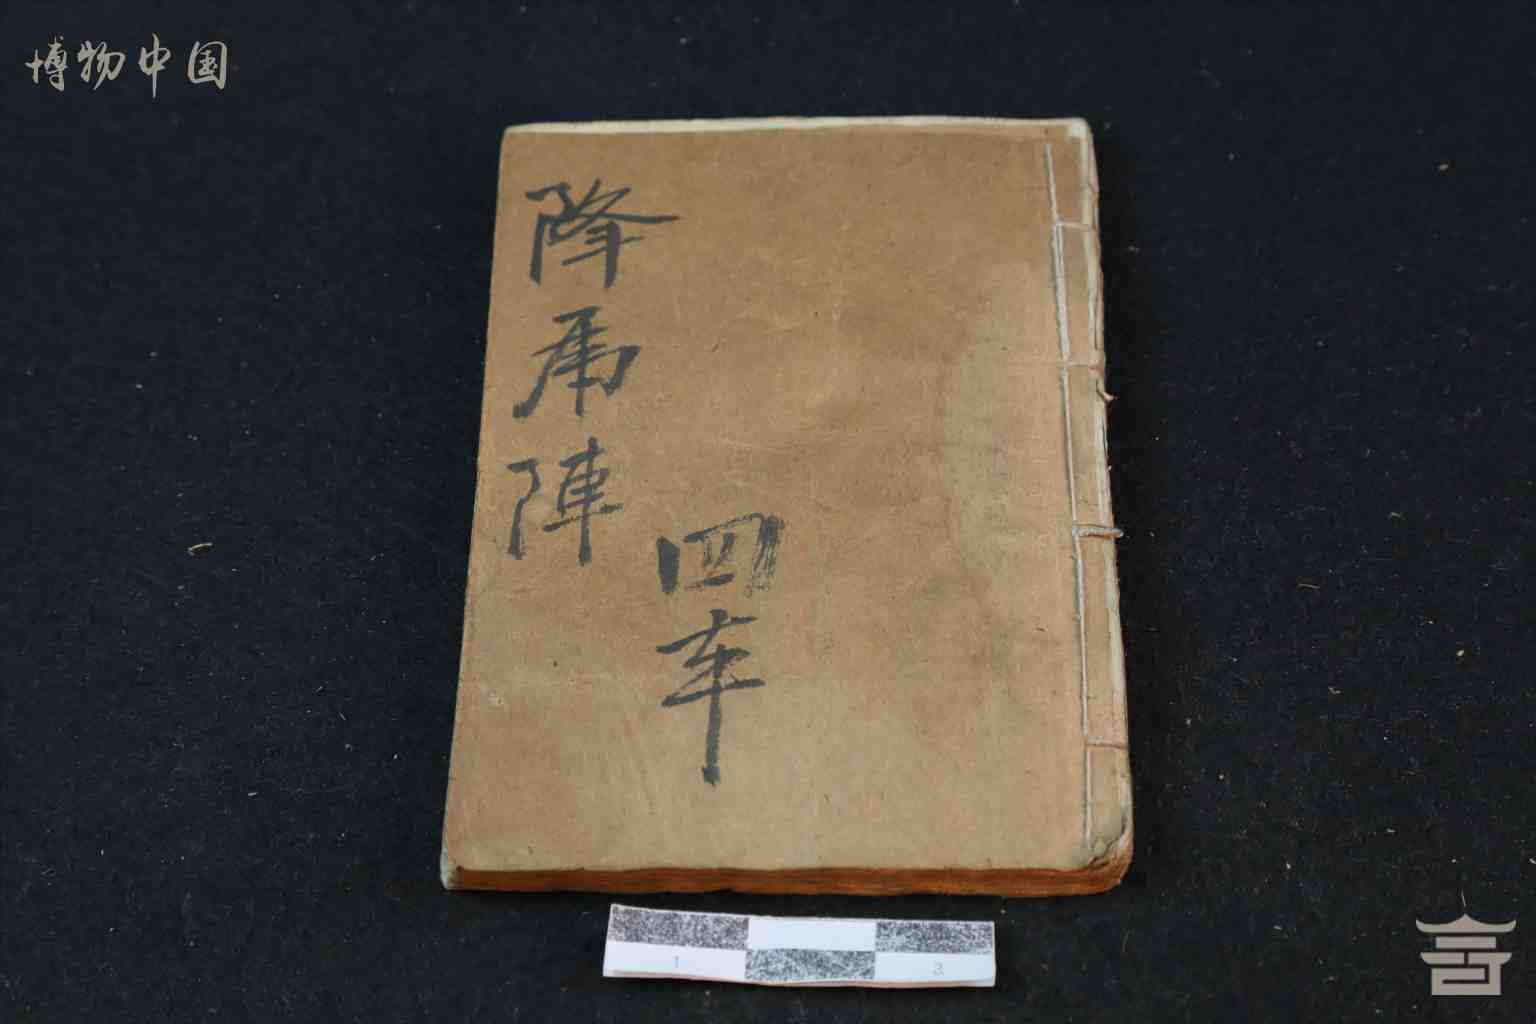 博物中国
降乕陣
四车
1 3